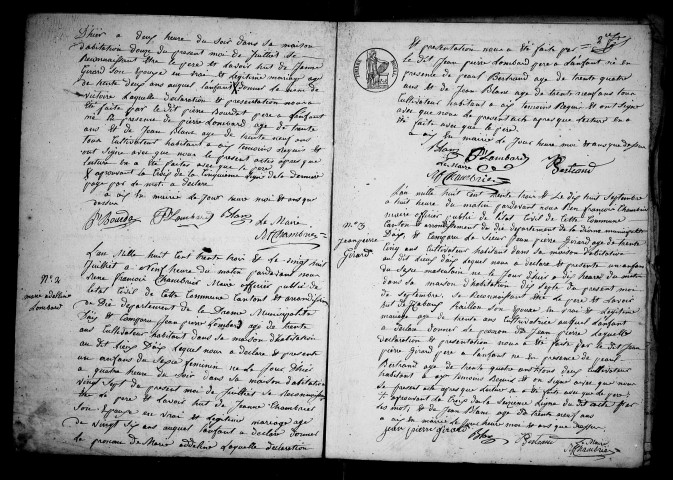 D'hier a deux heure du Soir dans sa maison
d'abitation douze du present mois de Juilliet Se
Reconnaissant être le pere et lavoir eut de Jeanne
Girard Son épouse en vrai et légitime mariage age
de trente deux ans auquel lanfant donner le nom de
victoire laquelle declaration et presentation nous a
été faite par le dit pierre Bourdet pere a lanfant
né En presence de pierre Lombard age de trente
ans et de Jean Blanc age de trente neuf ans
tous Cultivateur habitant a aix temoins Requis et
ont Signe avec que nous le present actes apres que
lecture en a été faites avec que le pere
approuvant la Croix de la Cinquieme ligne de la derniere
page par de mots a declare
a aix En mairie de Jour mois et ans que
dessus
P Bourdet P Lombard Blanc Le Maire
Mt Chambrier
N° 2
marie adeline
Lombard
L'an Mille huit Cent trente trois et Le vingt huit
Juilliet a Neuf heure du matin pardavant nous
Rene francois Chambrier Maire officier public de
létat Civil de Cette Commune Canton et arrondissement
de Die département de la Drome Municipalité
D'aix et Comparu Jean pierre Lombard age de trente
ans Cultivateur habitant dans sa maison d'habitation
au dit lieu D'aix Lequel nous a declare et presente
un anfans du Sexe feminin ne Le Jour D'hier
a quatre heure du Soir dans sa maison d'abitation
vingt Sept du present mois de Juilliet Se Reconnaissant
être le pere et lavoir eut de Jeanne Chambrier
Son Epouse en vrai et legitime mariage age
de vingt Six ans auquel lanfant a declare donner
le prenom de Marie addeline Laquelle declaration
et presentation nous a été faite par
le dit Jean pierre Lombard pere a lanfant né en
presence de paul Bertrand age de trente quatre
ans et de Jean Blanc age de trente neuf ans tous
Cultivateur habitans a aix temoins Requis et ont Signe
avec que nous de present acte apres que lecture en a
été faite avec que le pere
a aix En mairie de Jour mois et ans que dessus
Blanc P Lombard P Bertrand
Le Maire
Mt Chambrier
n° 3
Jean pierre
Girard
L'an nulle huit Cent trente trois et Le dix huit Septembre
a huit heure du matin pardavant nous Rene francois Chambrier
maire officier public de létat Civil de Cette Commune
Canton et arrondissement de die departement de la drome municipalité
D'aix et Comparu le Sieur Jean pierre Girard age de trente
Cinq ans Cultivateur habitant dans sa maison d'abitation
au dit lieux D'aix lequel nous a declare et presente un anfant
du Sexe masculin ne le Jour D'hier a dix heures du matin
dans sa maison d'habitation dix Septe du present mois
de Septembre Se Reconnaissant être le pere et lavoir
Son epouse en vrai et legitime
mariage age de trente ans Cultivatrice auquel lanfant
a declare donner le prenom de Jean pierre Laquelle
declaration et presentation nous a été faite par le dit Jean
pierre Girard pere a lanfant né En presence de paul
Bertrand age de trente quatre ans tous deux Cultivateur
habitant a aix temoins Requis et ont Signe avec que nous
le present acte apres que lecture en a été faite avec que le pere
approuvant la Croix de la Seizieme ligne du dit acte par
les mot, et de Jean Blanc age de trente neuf ans
a aix en mairie le Jour mois et ans que dessus
jean pierre girard Blanc P Bertrand Le Maire
Mt Chambrier